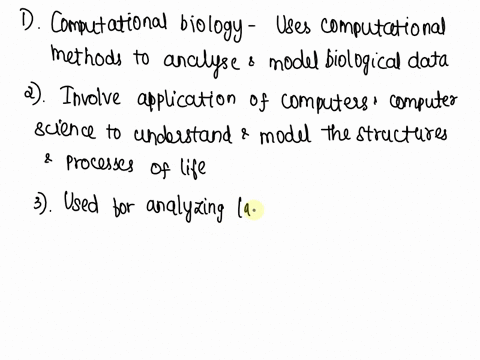 1). Computational biology - Uses computational
methods to analyse & model biological data
2). Involve application of computers & computer
science to understand & model the structures
& processes of life
3). Used for analyzing